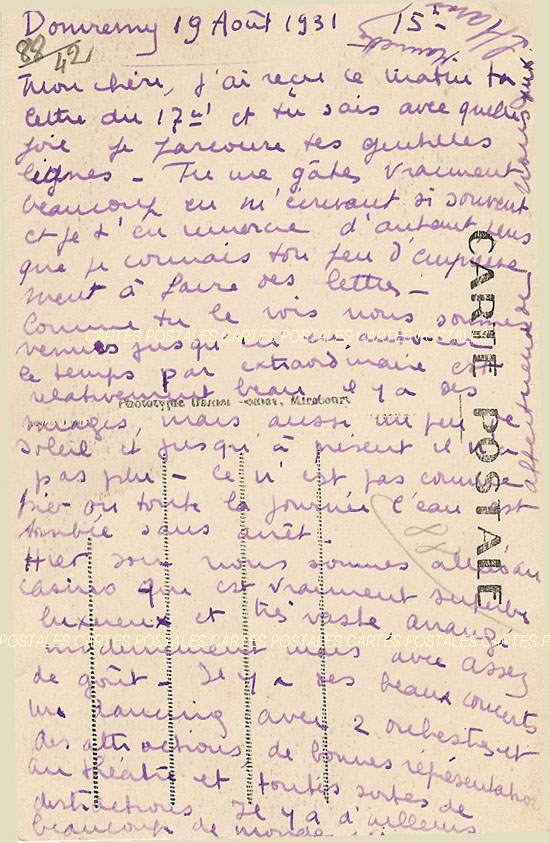 Domremy 19 Août 1931 15-
88
42
Mon chéri, j'ai reçu ce matin ta
lettre du 17 et tu sais avec quelle
joie je parcoure tes gentilles
lignes - Tu me gâtes vraiment
beaucoup en m'écrivant si souvent
et je t'en remercie d'autant plus
que je connais ton peu d'empresse
ment à faire des lettres -
Comme tu le vois nous sommes
venues jusqu'ici
le temps par extraordinaire est
relativement beau il y a des
nuages, mais aussi un peu de
soleil et jusqu'à présent il n'a
pas plu - Ce n'est pas comme
hier où toute la journée l'eau est
tombée sans arrêt.
Hier soir nous sommes allés au
casino que est vraiment superbe
luxueux et très vaste arrangé
modernement mais avec assez
de goût - Il y a des beaux concerts
un dancing avec 2 orchestres et
des attractions de bonnes représentations
au théâtre et toutes sortes de
distractions Il y a d'ailleurs
beaucoup de monde
affectueuse
CARTE POSTALE
Phototypie Mirecourt
88
CARTES POSTALES CARTES POSTALES CARTES POSTALES CARTES POSTALES
POSTALES CARTES POSTALES CARTES POSTALES CARTES POSTALES CARTES P